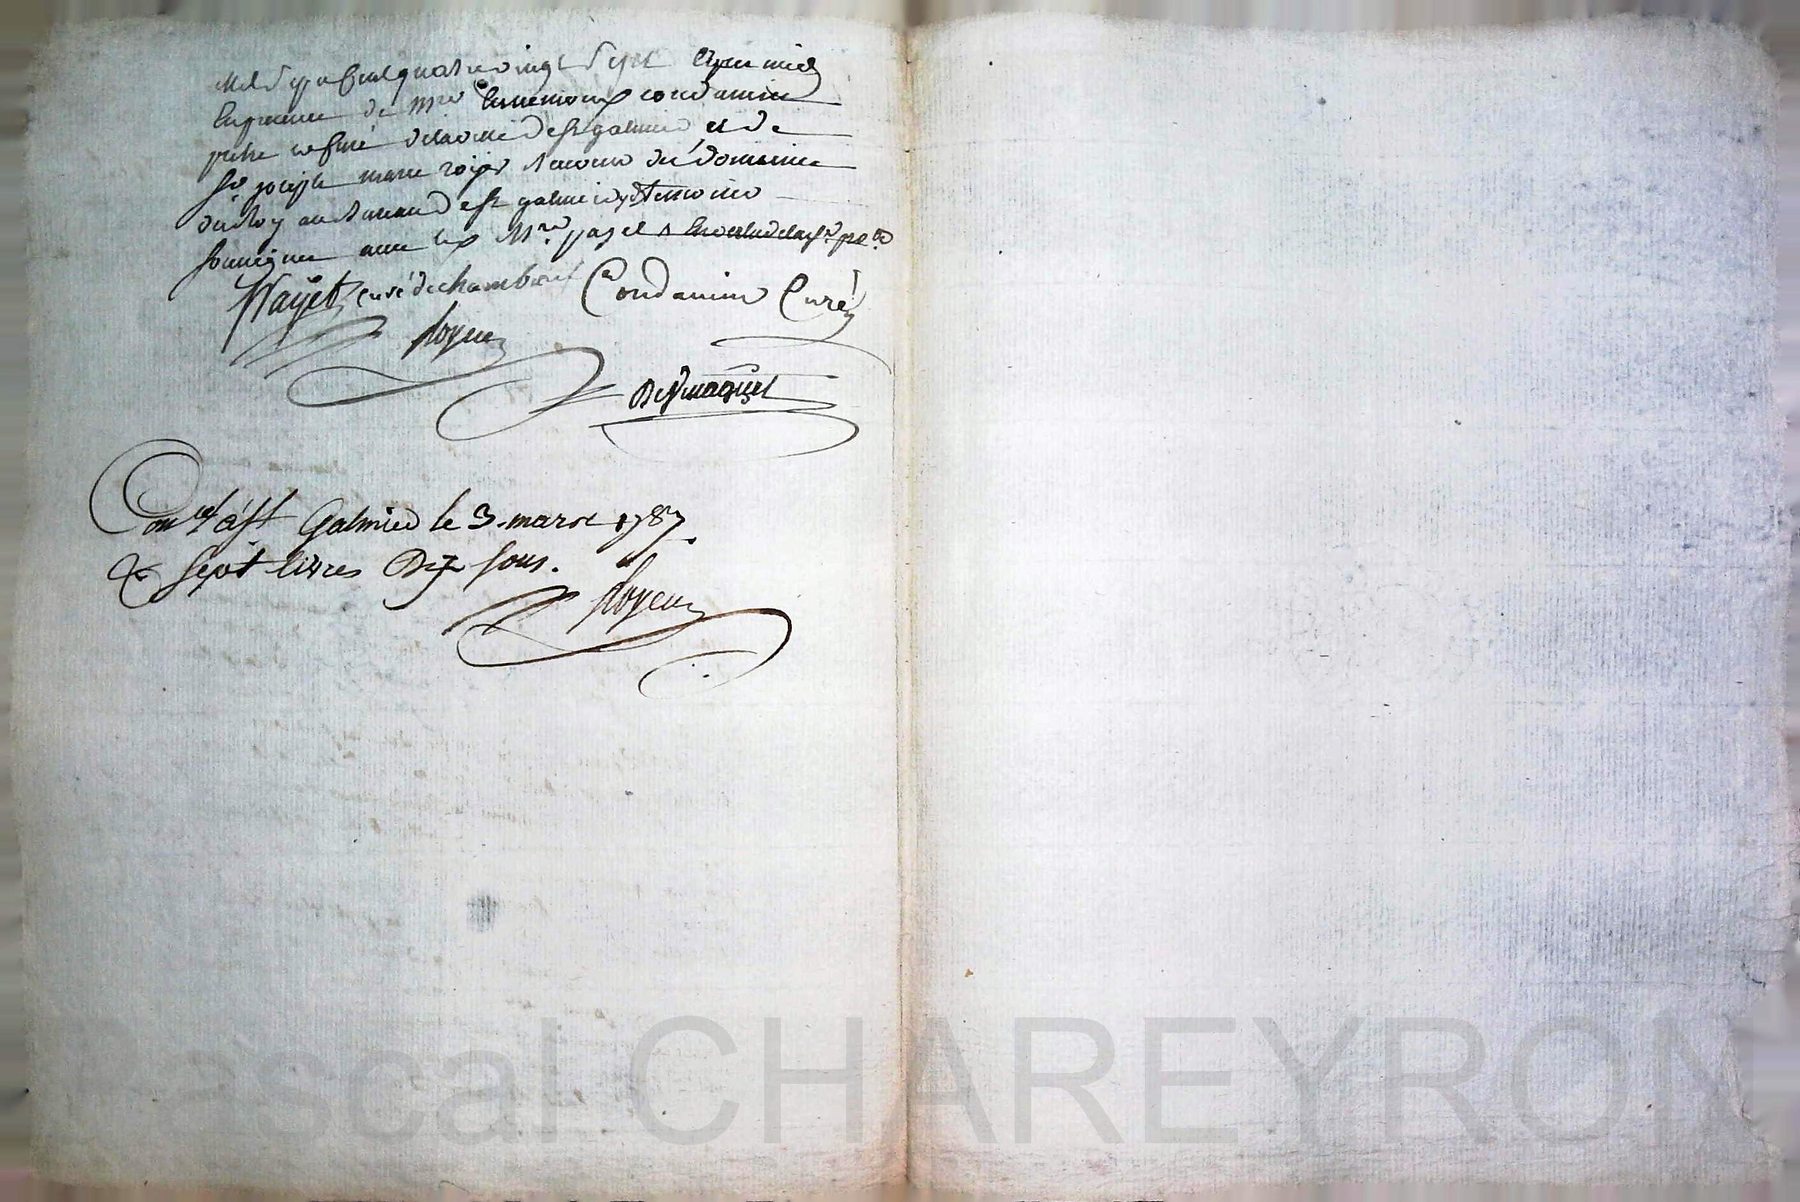 Mil Sept Cent quatre vingt Sept
En presence de Mre condamine
pretre et Curé de la ville de st galmier et de
Sr joseph marie Receveur des domaines
du Roy au Bureau de st galmier temoins
Soussignes avec led Mre payet
Payet curé de chambœuf Condamine Curé
Royer
Desmaquet
Conlé à St Galmier le 3. mars 1787.
Rx Sept livres Dix sous.
Royer
Pascal CHAREYRON